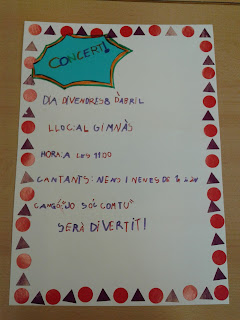 CONCERT!
DIA DIVENDRES 8 D'ABRIL
LLOC: AL GIMNÀS
HORA: A LES 11:00
CANTANTS: NENS I NENES DE 1r
CANÇÓ: "JO SÓC COM TU"
SERÀ DIVERTIT!